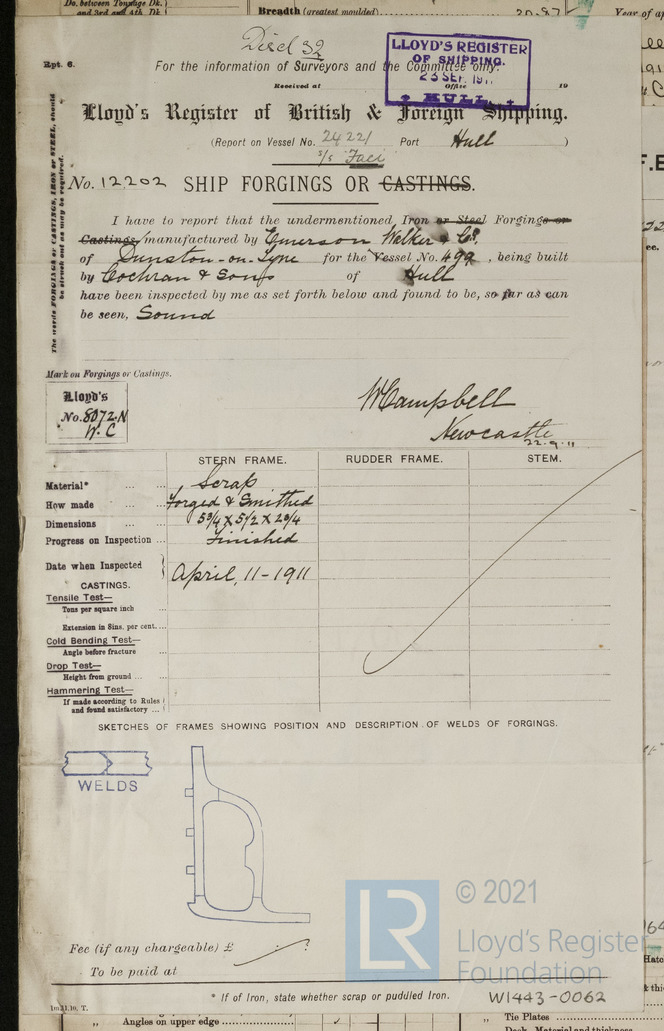 Do. between Tonnage Dk.
and 3rd and 4th Dk.
Breadth (greatest moulded)
20.87
Year of ap
Rpt. 6.
For the information of Surveyors and the Committee only.
LLOYD'S REGISTER
OF SHIPPING.
23 SEP. 1911
HULL
Received at
Office
19
Lloyd's Register of British & Foreign Shipping.
(Report on Vessel No. 24221 Port Hull )
No. 12202 SHIP FORGINGS OR CASTINGS.
The words FORGINGS or CASTINGS, IRON or STEEL, should
be struck out as may be required.
I have to report that the undermentioned Iron or Steel Forgings or
Castings manufactured by Emerson Walker & Co.
of Dunston-on-Tyne for the Vessel No. 499, being built
by Cochran & Sons of Hull
have been inspected by me as set forth below and found to be, so far as can
be seen, Sound
Mark on Forgings or Castings.
Lloyd's
No. 8072.N
W.C
W Campbell
Newcastle
22.9.11
STERN FRAME. RUDDER FRAME. STEM.
Material* Scrap
How made Forged & Smithed
Dimensions 5 3/4 X 5 1/2 X 2 3/4
Progress on Inspection Finished
Date when Inspected April, 11-1911
CASTINGS.
Tensile Test—
Tons per square inch
Extension in 8ins. per cent.
Cold Bending Test—
Angle before fracture
Drop Test—
Height from ground
Hammering Test—
If made according to Rules
and found satisfactory
SKETCHES OF FRAMES SHOWING POSITION AND DESCRIPTION OF WELDS OF FORGINGS.
WELDS
LR
© 2021
Lloyd's Register
Foundation
Fee (if any chargeable) £
To be paid at
* If of Iron, state whether scrap or puddled Iron.
W1443-0062
Angles on upper edge
Tie Plates